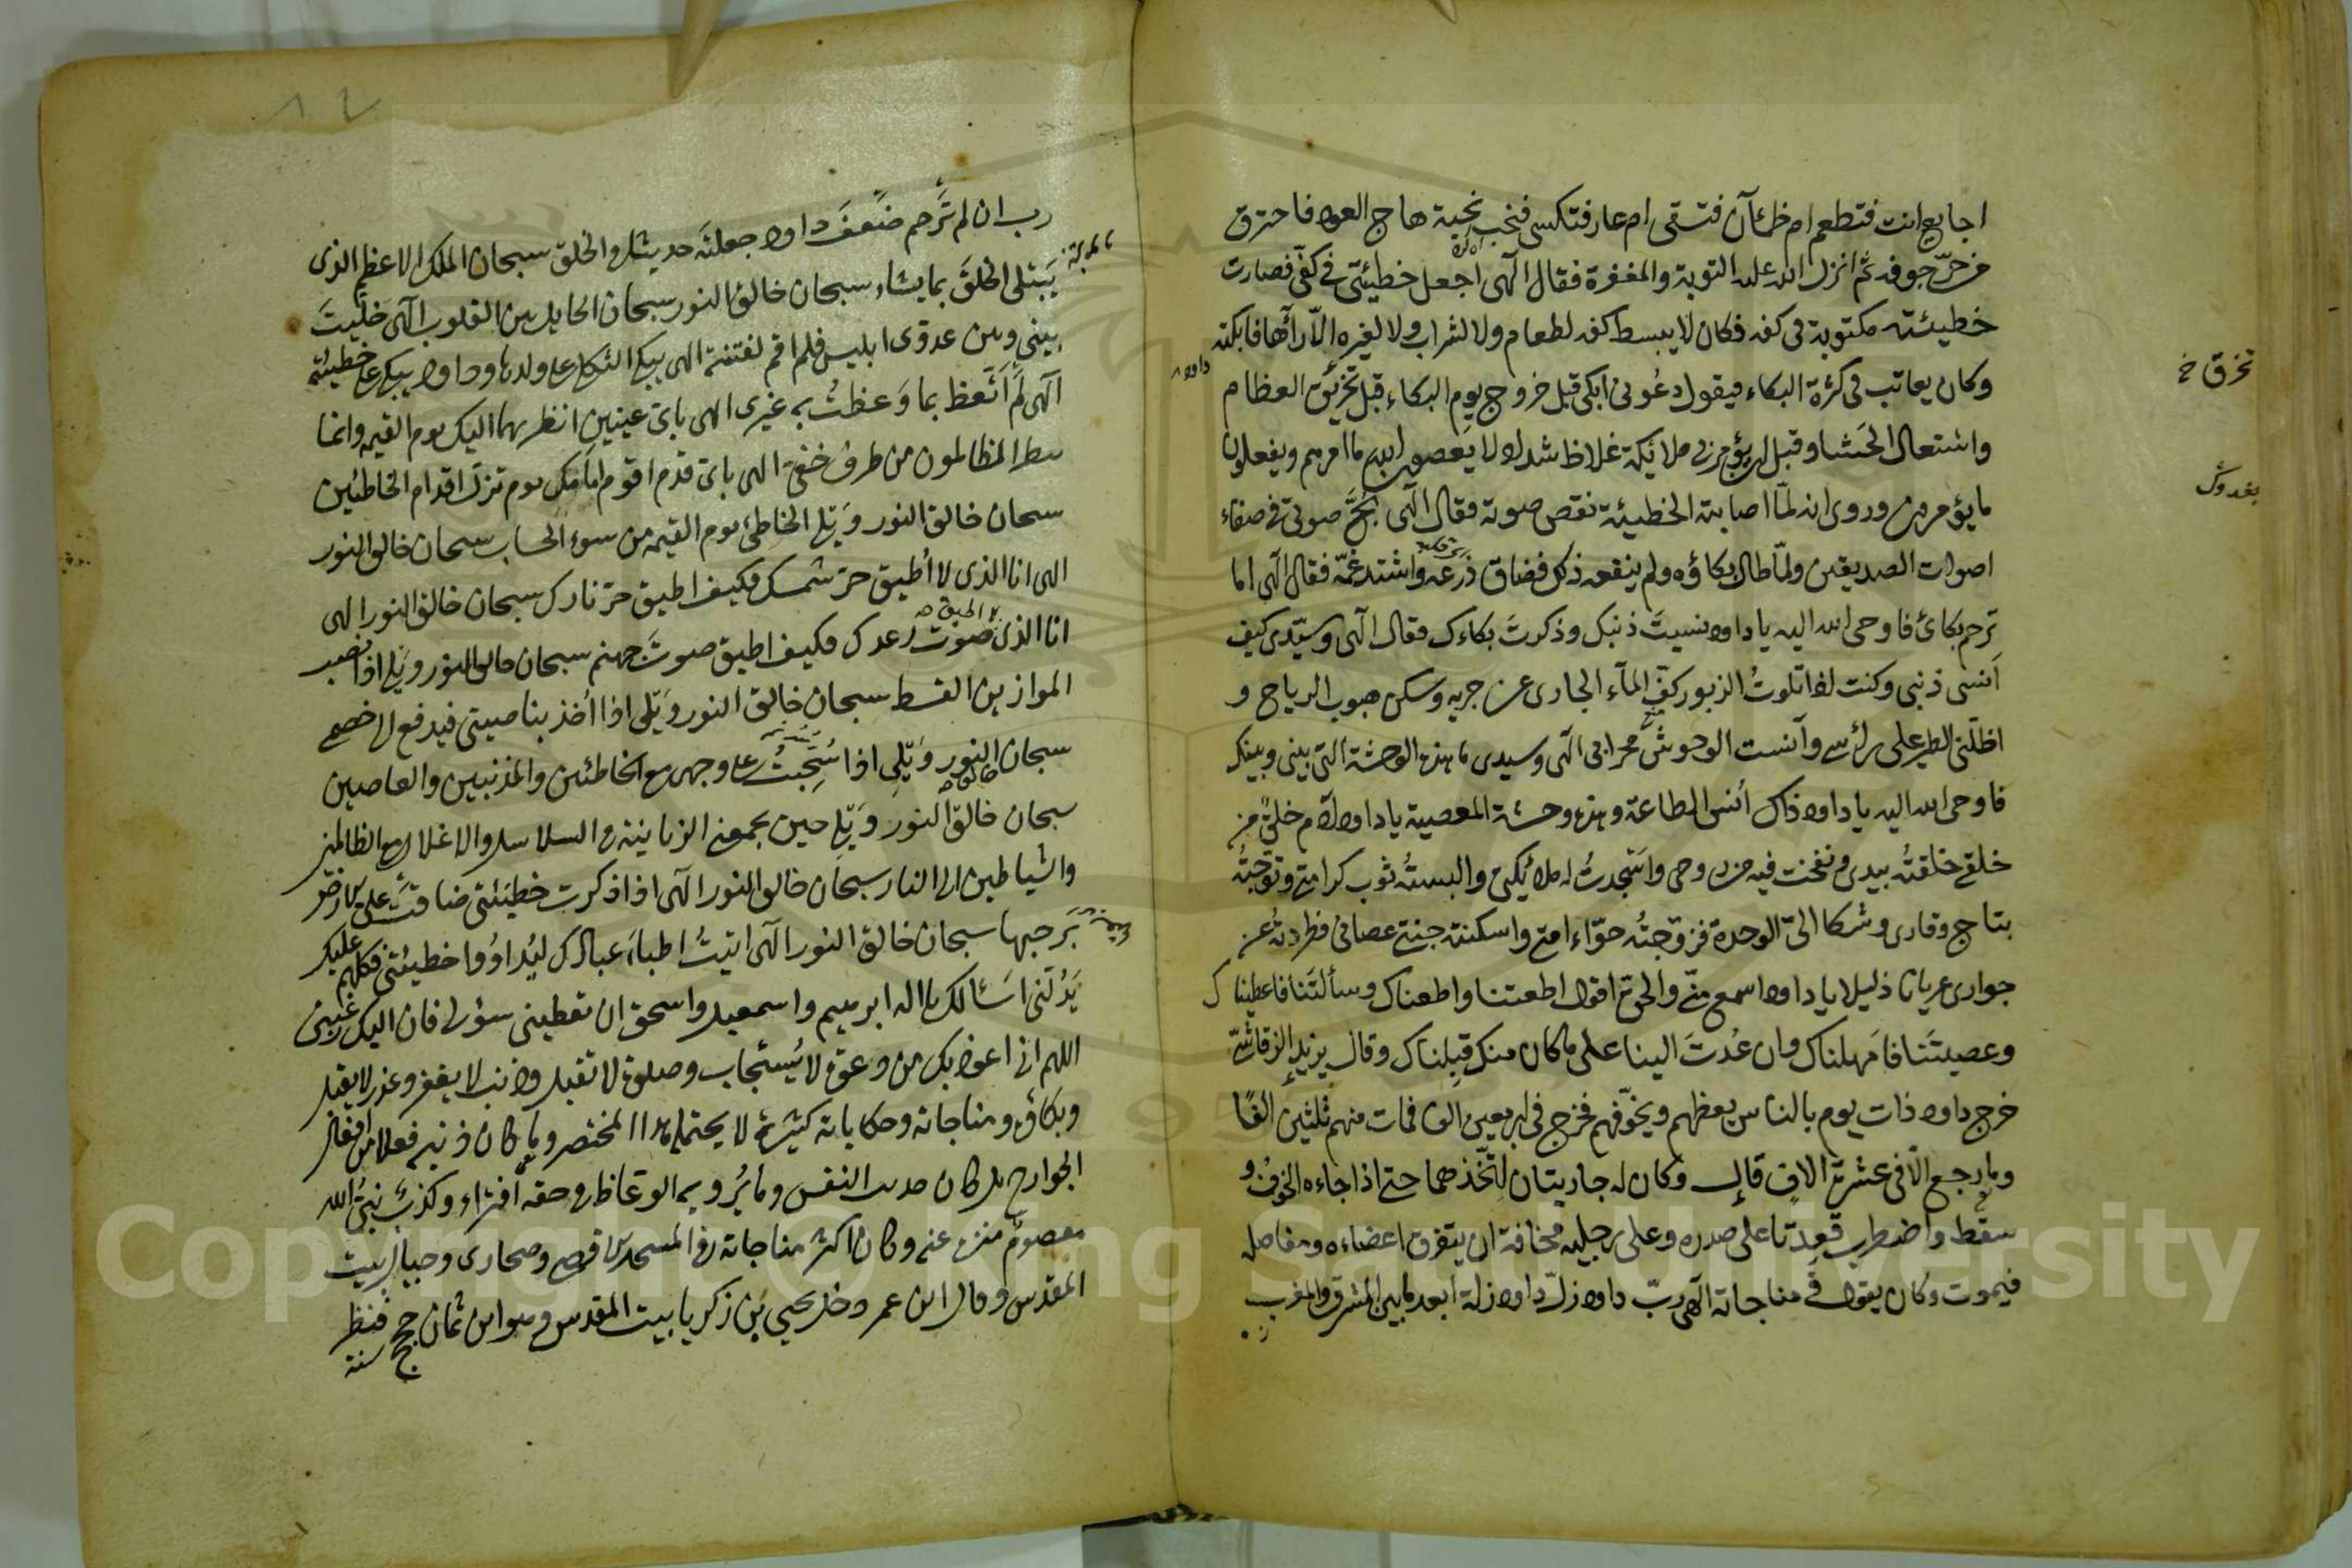 اجايع انت فتطعم ام ظمآن فتسقى ام عار فتكسى فنحب نحبة هاج العود فاحترق
من حرّ جوفه ثم انزل الله عليه التوبة والمغفرة فقال الٓهى اجعل خطيئتى فى كفّى فصارت
خطيئته مكتوبة فى كفه فكان لا يبسط كفه لطعام ولا لشراب ولا لغيره الّا رآها فابكته
وكان يعاتب فى كثرة البكاء فيقول دعُونى ابكى قبل خروج يوم البكاء قبل تخريق العظام
تخرق خ
داود
واشتعال الحَشا وقبل ان يؤمر بى ملائيكة غلاظ شداد لا يعصون الله ما امرهم ويفعلون
ما يؤمرون وروى انه لمّا اصابته الخطيئة نقص صوته فقال الٓهى بُحَّ صوتى فى صفاء
اصوات الصديقين ولمّا طال بكاؤه ولم ينفعه ذلك فضاق ذرعه واشتد غمّه فقال الٓهى اما
ترحم بكائى فاوحى الله اليه يا داود نسيتَ ذنبك وذكرتَ بكاءك فقال الٓهى وسيّدى كيف
اَنسى ذنبى وكنت اذا تلوتُ الزبور كفّ المآء الجارى عن جريه وسكن هبوب الرياح و
اظلّنى الطير على راسى وآنست الوحوش محرابى الٓهى وسيدى ما هذه الوحشة التى بينى وبينك
فاوحى الله اليه يا داود ذاك اُنس الطاعة وهذه وحشة المعصية يا داود آدم خلق من
خلقى خلقتهُ بيدى ونفخت فيه من روحى واسجدتُ له ملائيكتى والبستهُ ثوب كرامتى وتوّجتهُ
بتاج وقارى وشكا الىّ الوحدة فزوّجتُه حوّاء امتى واسكنته جنتى عصانى فطردتهُ عن
جوارى عريانا ذليلا يا داود اسمع منّى والحقّ اقول اطعتنا واطعناك وسألتَنا فاعطيناك
وعصيتَنا فامهلناك وان عُدتَ الينا على ما كان منك قبِلناك وقال يزيد الرقاشىّ
خرج داود ذات يوم بالناس يعظهم ويخوّفهم فخرج فى اربعين الف فمات منهم ثلثين الفًا
وما رجع الّا فى عشرة الاف قال وكان له جاريتان اتّخذهما حتى اذا جاءه الخوف و
سقط واضطرب قعدتا على صدره وعلى رجليه مخافة ان يتفرق اعضاءه ومفاصله
فيموت وكان يقول فى مناجاته الٓهى ربّ داود زلّ داود زلة ابعد ما بين المشرق والمغرب
رب ان لم تَرحم ضَعفَ داود جعلتَه حديثا فى الخلق سبحان الملك الاعظم الذى
يَبتلى الخلقَ بما يشاء سبحان خالق النور سبحان الحايل بين القلوب الٓهى خلّيتَ
بينى وبين عدوّى ابليس فلم اقم لفتنته الهى يبكى الثكلى على ولدها وداود يبكى على خطيئته
الٓهى لم اَتّعظ بما وَعظتُ به غيرى الهى باىّ عينين انظر بهما اليك يوم القيمة وانما
ينظر الظالمون من طرف خفىّ الهى باىّ قدم اقوم امامك يوم تزلّ اقدام الخاطئين
سبحان خالق النور وَيلى الخاطئ يوم القيمة من سوء الحساب سبحان خالق النور
الهى انا الذى لا اُطيق حرّ شمسك فكيف اطيق حرّ نارك سبحان خالق النور الهى
انا الذى لا اطيق صوت رعدك فكيف اطيق صوتَ جهنم سبحان خالق النور ويلى اذا نصب
الموازين القسط سبحان خالق النور وَيلى اذا اُخذ بناصيتى فيدفع الى خصمى
سبحان خالق النور وَيلى اذا سُحِبتُ على وجهى مع الخاطئين والمذنبين والعاصين
سبحان خالق النور وَيلى حين يجمعنى الزبانية فى السلاسل والاغلال مع الظالمين
والشياطين الى النار سبحان خالق النور الٓهى اذا ذكرت خطيئتى ضاقت علىّ الارض
برَحبها سبحان خالق النور الٓهى اتيتُ اطباءَ عبادك ليُداوُوا خطيئتى فكلهم عليك
يَدُلّنى اَسئالك يا اله ابرهيم واسمعيل واسحق ان تعطينى سؤلى فان اليك رغبتى
اللهم انى اعوذ بك من دعوة لا يُستجاب وصلوة لا تقبل وذنب لا يغفر وعذر لا يقبل
وبكاؤه ومناجاته وحكاياته كثيرة لا يحتمله هذا المختصر وما كان ذنبه فعلا من افعال
الجوارح بل كان حديث النفس وما يُروِيه الوعّاظ فى حقه افتراء وكذب نبىُّ الله
معصومٌ منزه عنه وكان اكثر مناجاته فى المسجد الاقصى وصحارى وجبال بيت
المقدس وقال ابن عمر دخل يحيى بن زكريا بيت المقدس وهو ابن ثمان حجج فنظر
سنة